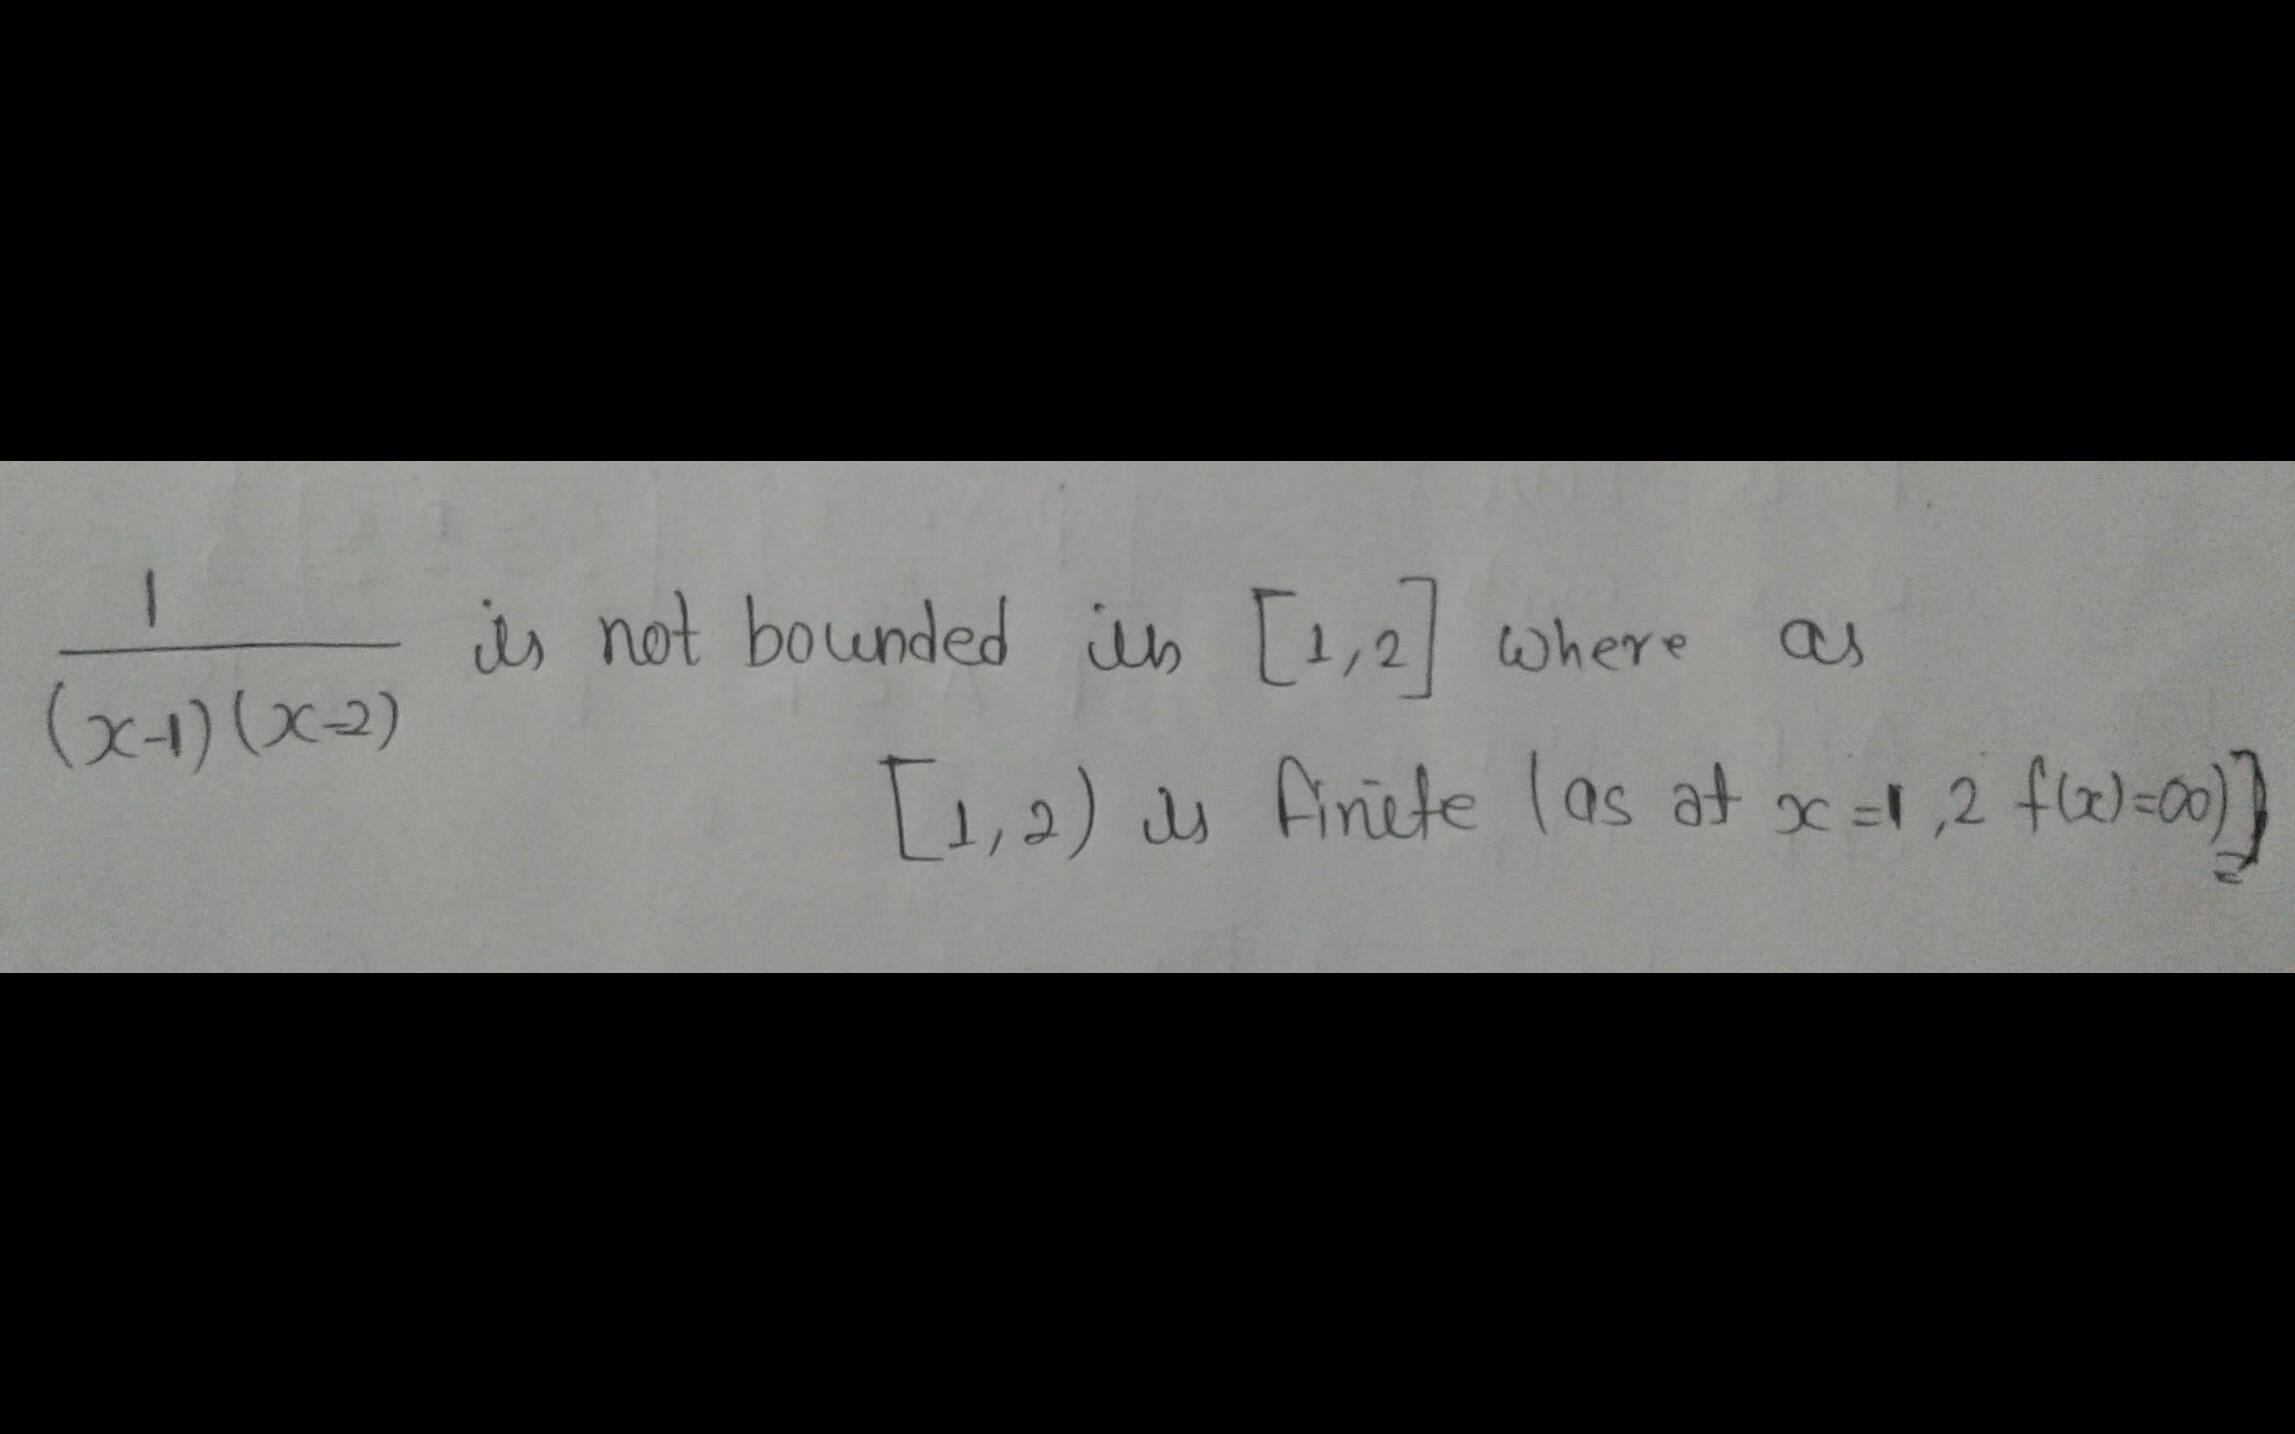 1/(x-1)(x-2) is not bounded in [1,2] where as
[1,2) is finite (as at x=1,2 f(x)=∞)]